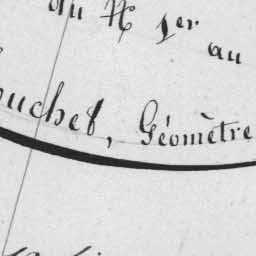 du N 1er au
ouchet, Géomètre